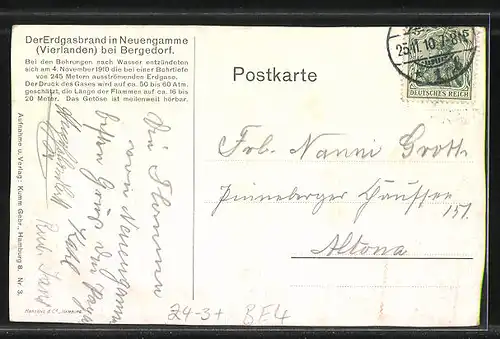 Der Erdgasbrand in Neuengamme
(Vierlanden) bei Bergedorf.
Bei den Bohrungen nach Wasser entzündeten
sich am 4. November 1910 die bei einer Bohrtiefe
von 245 Metern ausströmenden Erdgase.
Der Druck des Gases wird auf ca. 50 bis 60 Atm.
geschätzt, die Länge der Flammen auf ca. 15 bis
20 Meter. Das Getöse ist meilenweit hörbar.
Postkarte
25.11.10. 7-8
DEUTSCHES REICH
Frl. Nanni Groth
Pinneberger Chaussee
151.
Altona
Die Flammen
von Neuengamme
besten Gruss
Aufnahme u. Verlag: Kumm Gebr., Hamburg 8. Nr. 3.
24-3+ BE4